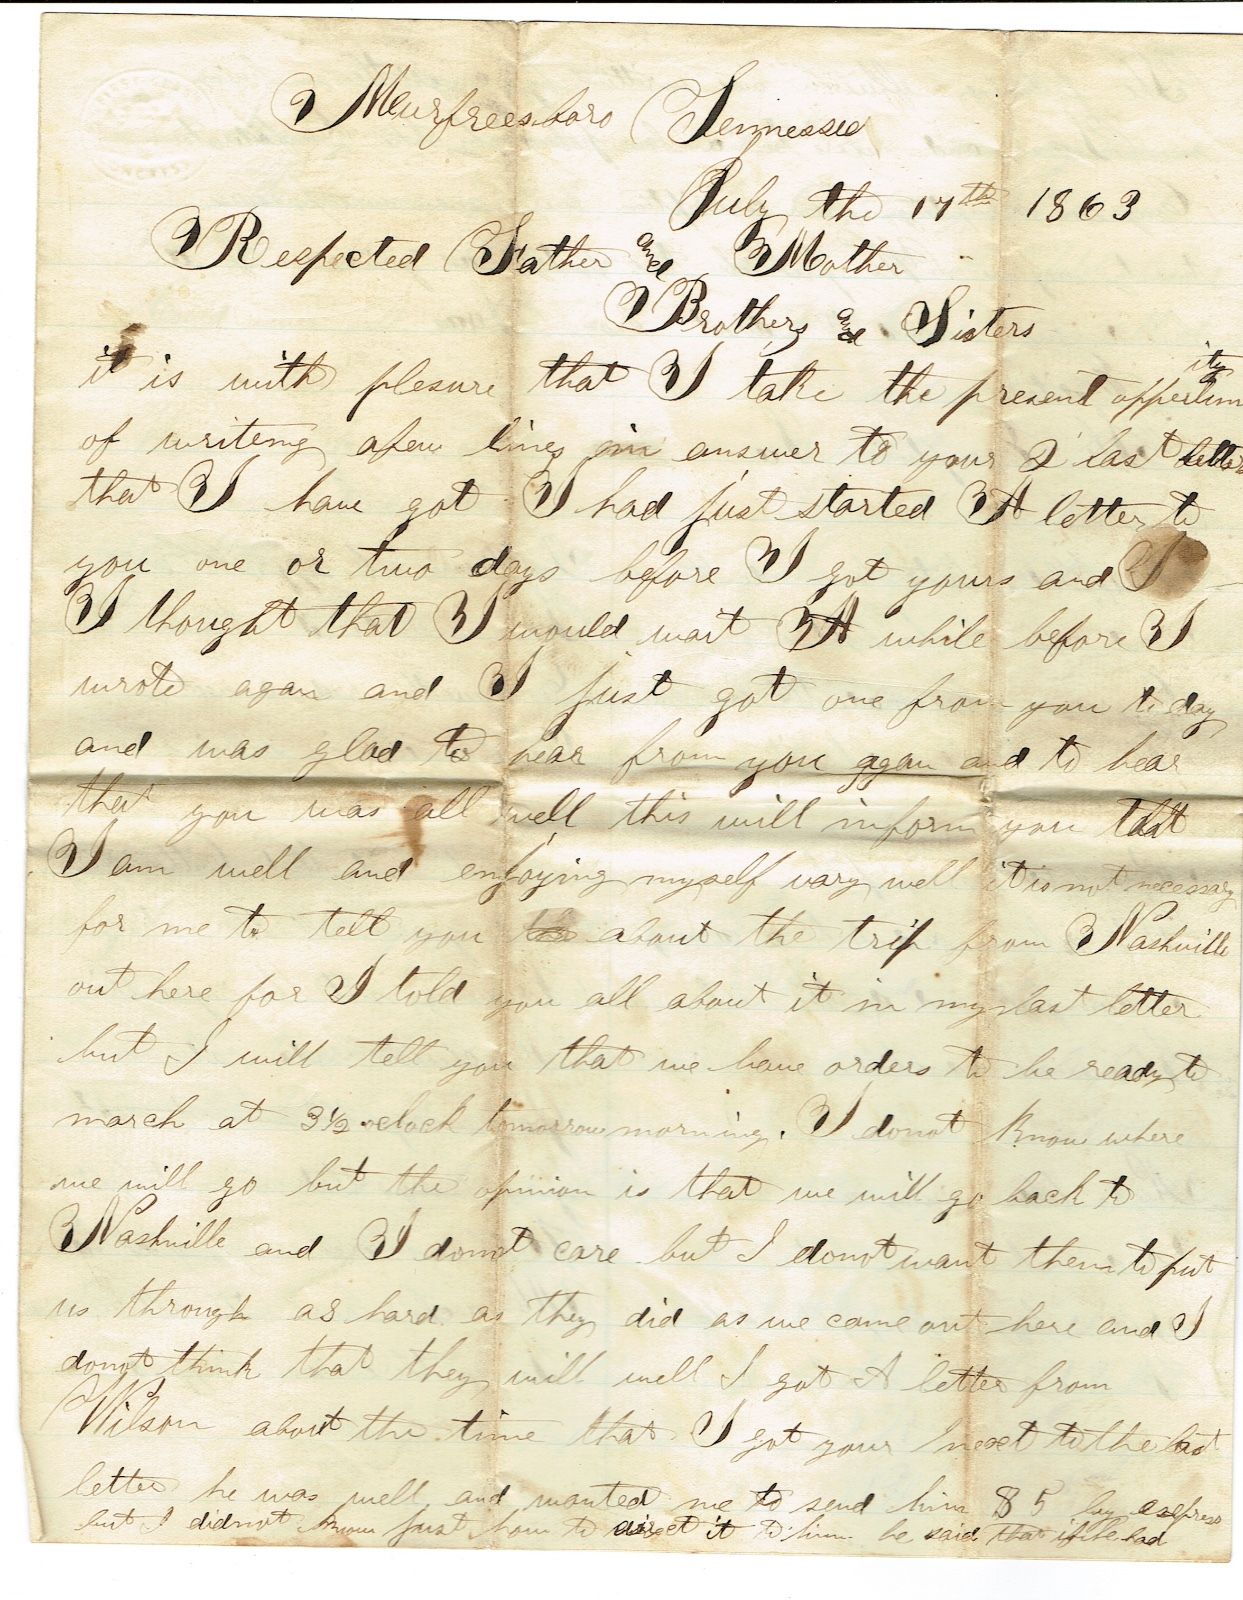 Murfreesboro Tennessee
July the 17th 1863
Respected Father and Mother
Brothers and Sisters
it is with plesure that I take the present oppertunity
of writeing afew lines in answer to your 2 last letters
that I have got I had just started A letter to
you one or two days before I got yours and I
I thought that I would wait A while before I
wrote agan and I just got one from you to day
and was glad to hear from you agan and to hear
that you was all well this will inform you that
I am well and enjoying myself vary well it is not necessary
for me to tell you about the trip from Nashville
out here for I told you all about it in my last letter
but I will tell you that we have orders to be ready to
march at 3½ oclock tomorrow morning. I donot know where
we will go but the opinion is that we will go back to
Nashville and I donot care but I donot want them to put
us through as hard as they did as we came out here and I
donot think that they will well I got A letter from
Wilson about the time that I got your next to the last
letter he was well and wanted me to send him $5 by express
but I didnot know just how to direct it to him he said that if he had